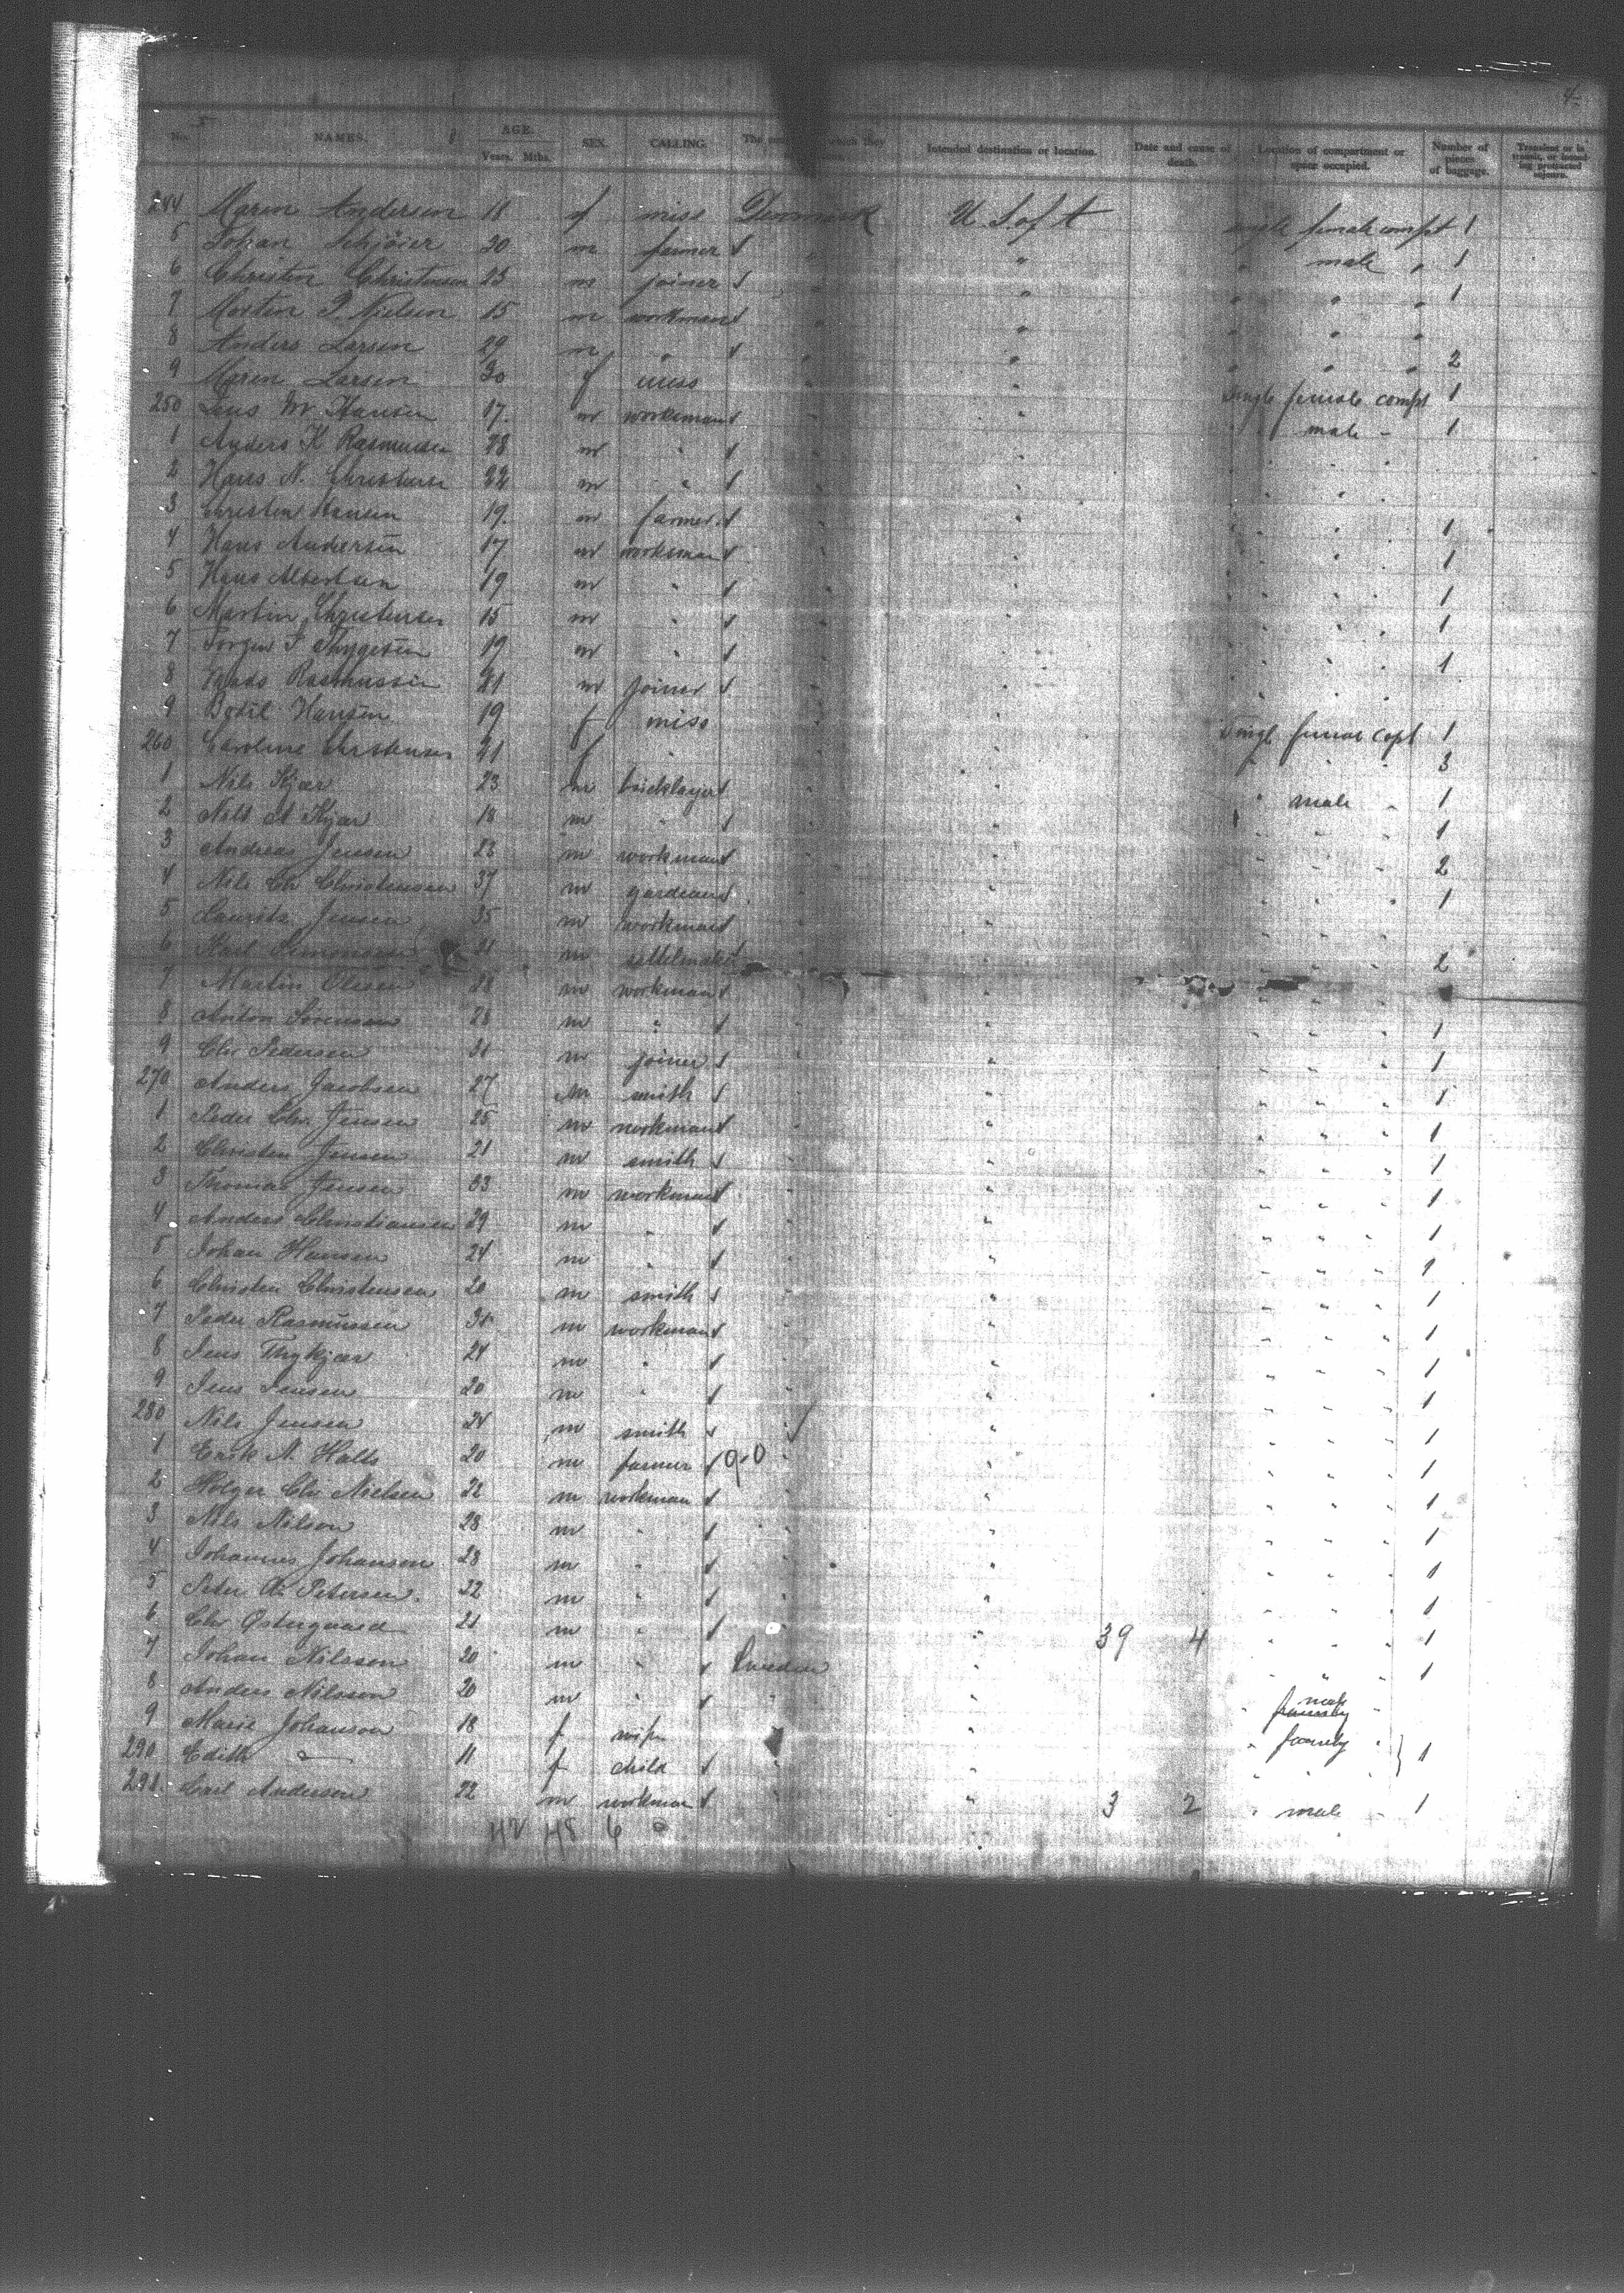 4
No. NAMES. AGE. SEX. CALLING. The which they Intended destination or location. Date and cause of death. Location of compartment or space occupied. Number of pieces of baggage. Transient or in transit, or intending protracted sojourn.
Years. Mths.
244 Maren Andersen 18 f miss Denmark U.S. of A single female compt 1
5 Johan 20 m farmer " " " male " 1
6 Christen Christensen 25 m joiner " " " " " 1
7 Morten P. Nielsen 15 m workman " " " " "
8 Anders Larsen 29 m " " " " " " 2
9 Maren Larsen 30 f miss " " Single female compt 1
250 Jens M. Hansen 17 m workman " " " male " 1
1 Anders K Rasmussen 28 m " " " " " "
2 Hans N. Christensen 22 m " " " " " "
3 Christen Hansen 19 m farmer " " " " " 1
4 Hans Andersen 17 m workman " " " " " 1
5 Hans Albertsen 19 m " " " " " " 1
6 Martin Christensen 15 m " " " " " " 1
7 Jørgen J Thygesen 19 m " " " " " " 1
8 Mads Rasmussen 21 m joiner " " " " "
9 Bodil Hansen 19 f miss " " Singl female copt 1
260 Caroline Christensen 21 f " " " " " " 3
1 Nils Kjær 23 m bricklayer " " " male " 1
2 Nils A Kjær 18 m " " " " " " 1
3 Andreas Jensen 23 m workman " " " " " 2
4 Nils Chr Christensen 37 m " " " " " 1
5 Laurits Jensen 35 m workman " " " " "
6 Karl Simonsen 21 m " " " " " 2
7 Martin Olesen 28 m workman " " " " "
8 Anton Sørensen 28 m " " " " " " 1
9 Chr Pedersen 21 m joiner " " " " " 1
270 Anders Jacobsen 27 m smith " " " " " 1
1 Peder Chr. Jensen 25 m workman " " " " " 1
2 Christen Jensen 21 m smith " " " " " 1
3 Thomas Jensen 23 m workman " " " " " 1
4 Anders Christiansen 29 m " " " " " " 1
5 Johan Hansen 24 m " " " " " " 1
6 Christen Christensen 20 m smith " " " " " 1
7 Peder Rasmussen m workman " " " " " 1
8 Jens Thykjær 24 m " " " " " " 1
9 Jens Jensen 20 m " " " " " " 1
280 Nils Jensen 24 m smith " " " " " 1
1 Erik N. Halls 20 m farmer " " " " " 1
2 Holger Chr Nielsen 22 m workman " " " " " 1
3 Nils Nilson 28 m " " " " " " 1
4 Johannes Johansen 23 m " " " " " " 1
5 Peter Petersen. 22 m " " " " " " 1
6 Chr Østergaard 21 m " " " 39 4 " " " 1
7 Johan Nilsson 20 m " Sweden " " " " 1
8 Anders Nilsson 20 m " " " " male "
9 Marie Johanson 18 f wife " " " family "
290 Edith " 11 f child " " " " " 1
291 Carl Anderson 22 m workman " " 3 2 " male " 1
42 48 6